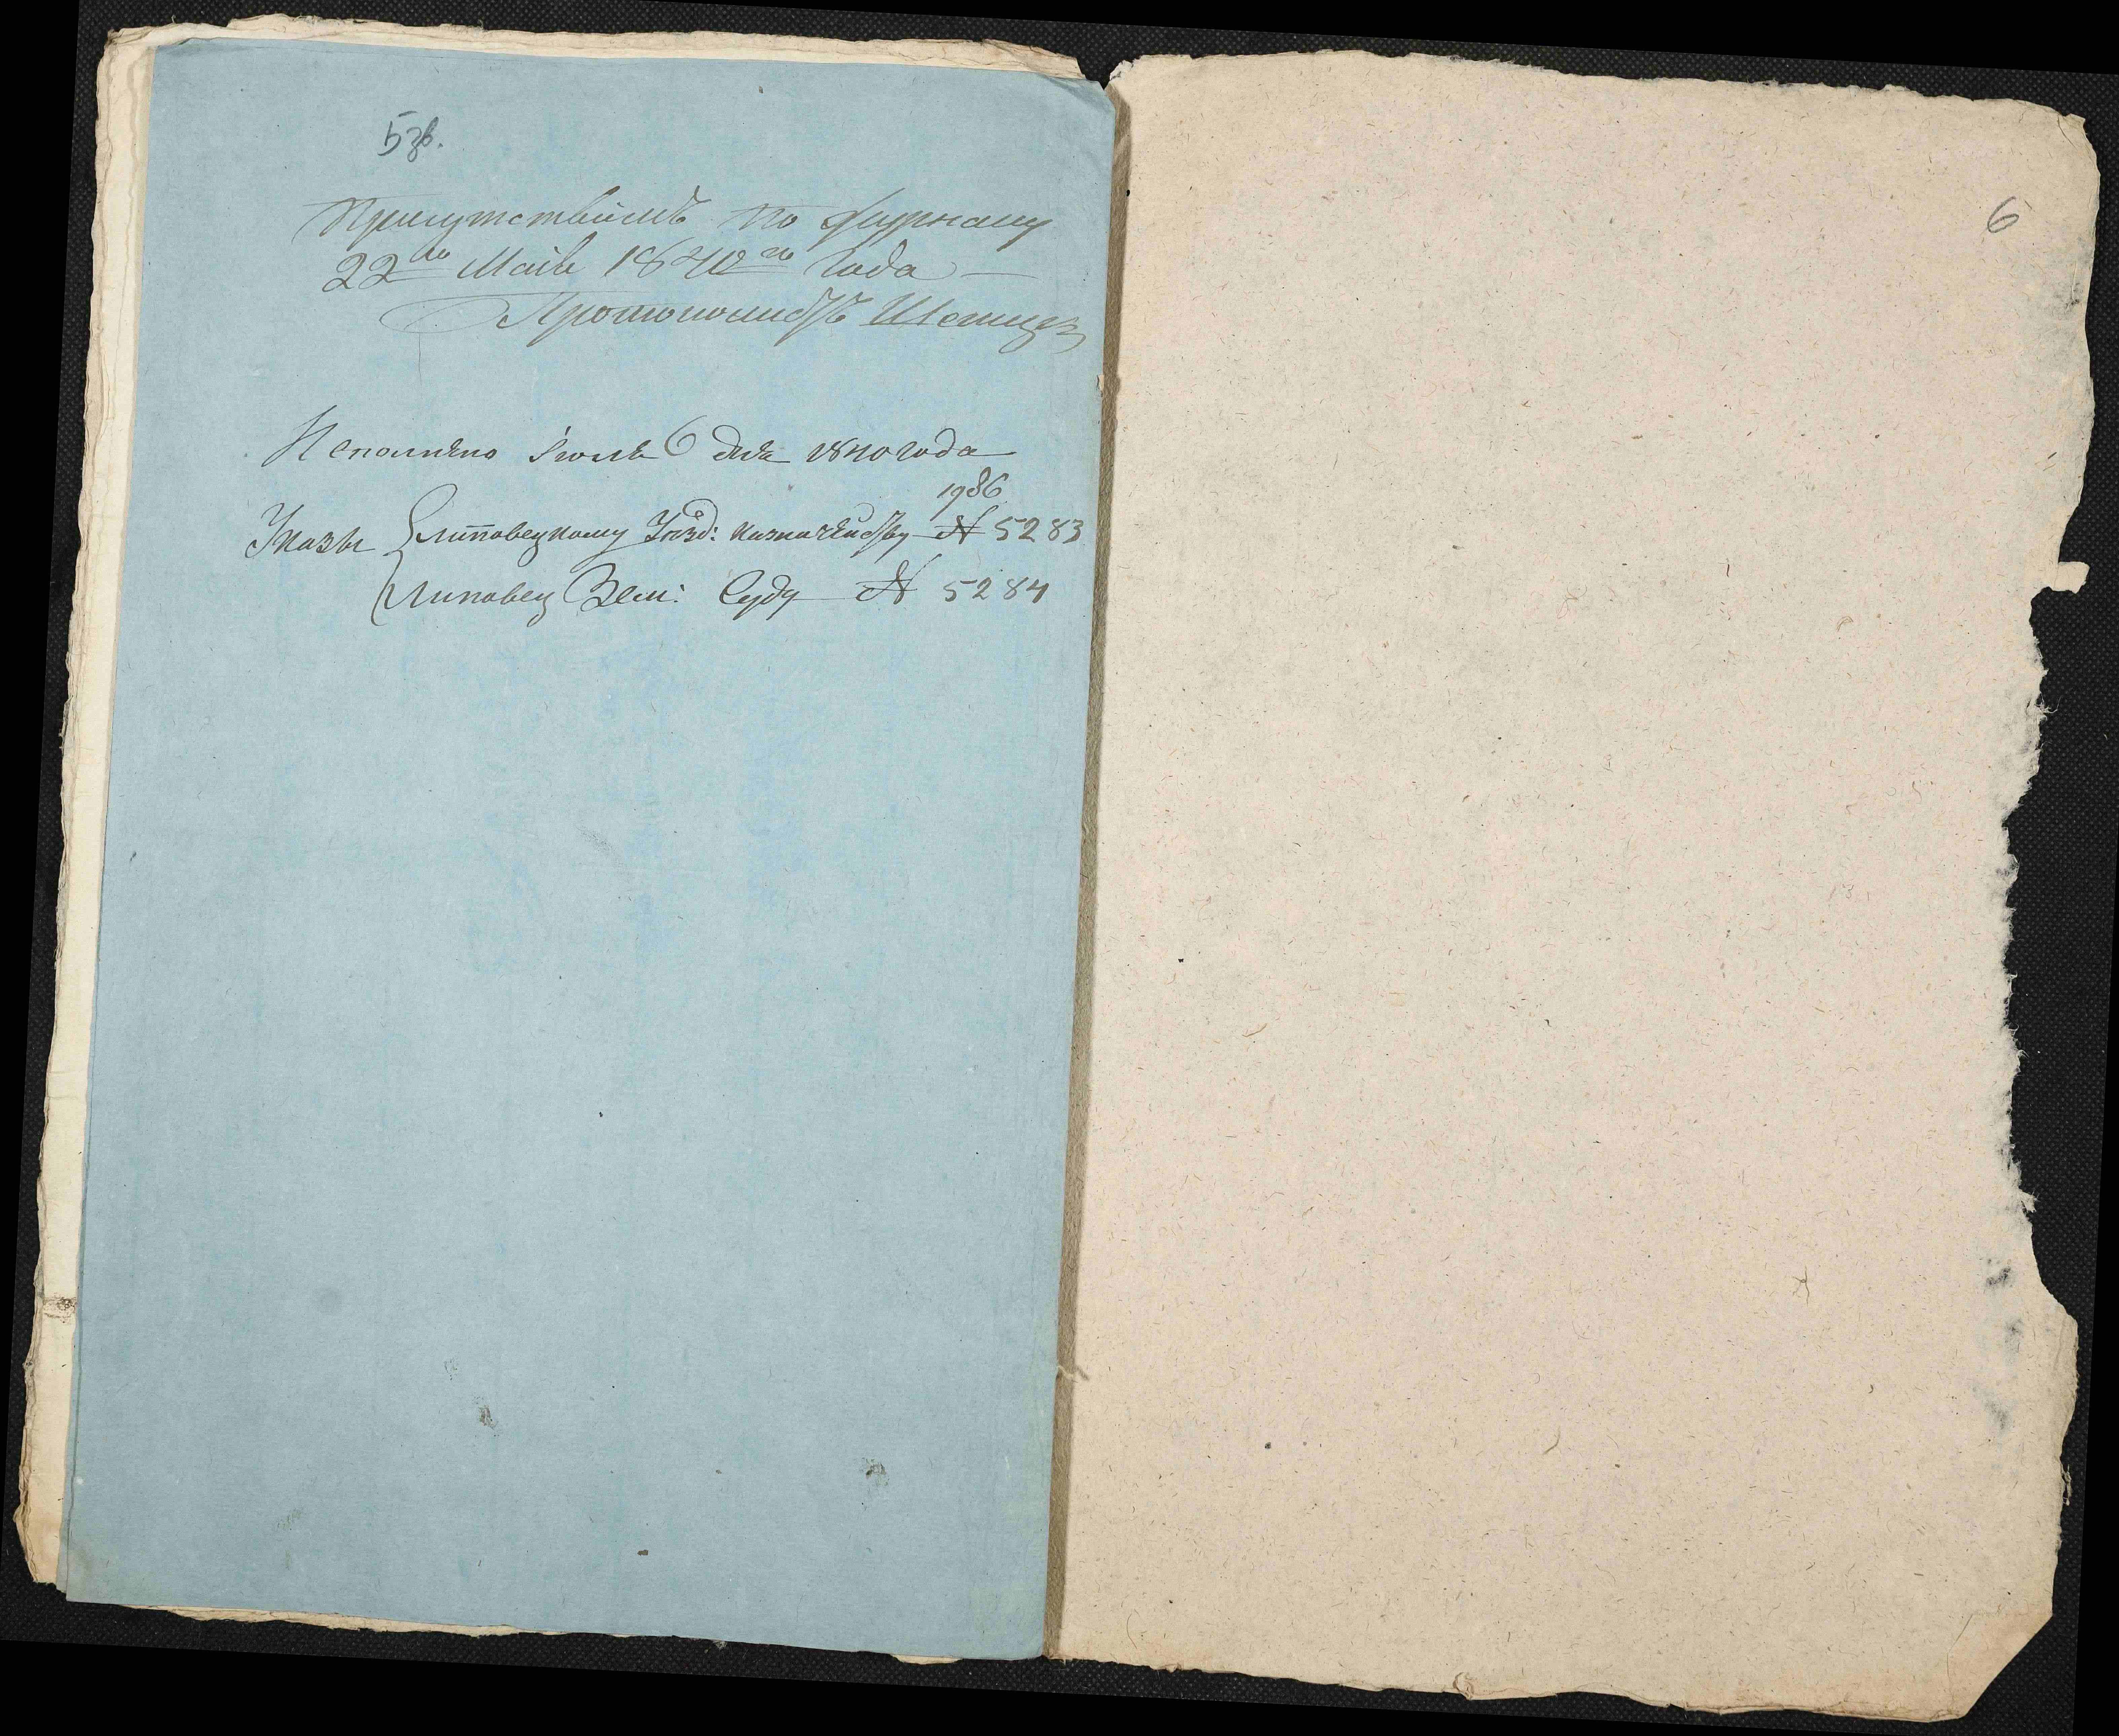 5зв.
Присутствіемъ по журналу
22го Маія 1840го года —
Протоколистъ
Исполнено іюля 6 дня 1840 года
1986
Указы Липовецкому Уезд: Казначейству № 5283
Липовец Зем: Суду № 5284
6